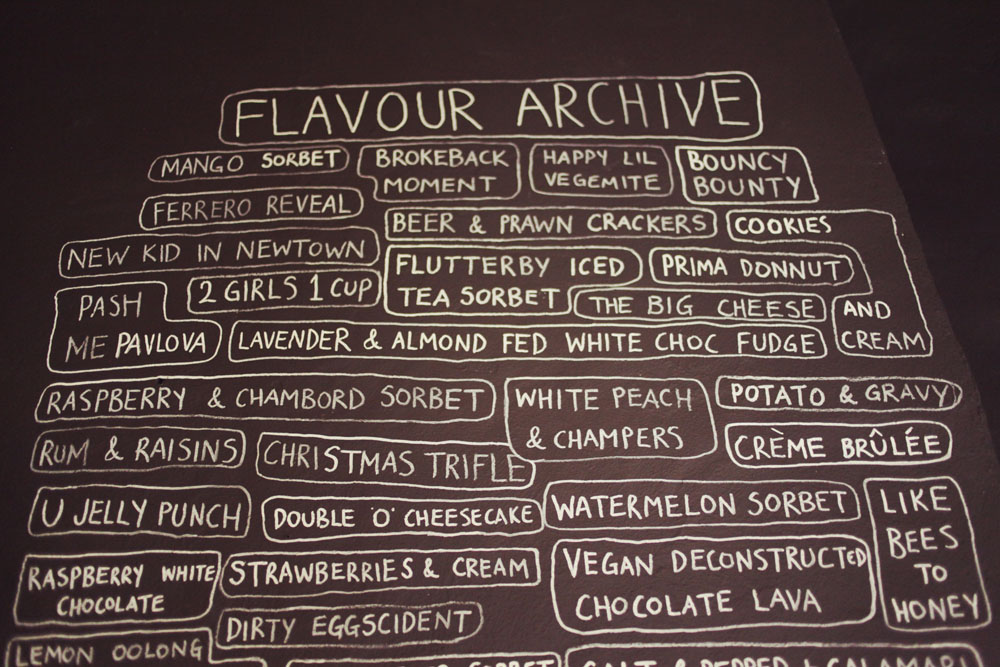 FLAVOUR ARCHIVE
MANGO SORBET
BROKEBACK
MOMENT
HAPPY LIL
VEGEMITE
BOUNCY
BOUNTY
FERRERO REVEAL
BEER & PRAWN CRACKERS
COOKIES
AND
CREAM
NEW KID IN NEWTOWN
FLUTTERBY ICED
TEA SORBET
PRIMA DONNUT
PASH
ME PAVLOVA
2 GIRLS 1 CUP
THE BIG CHEESE
LAVENDER & ALMOND FED WHITE CHOC FUDGE
RASPBERRY & CHAMBORD SORBET
WHITE PEACH
& CHAMPERS
POTATO & GRAVY
RUM & RAISINS
CHRISTMAS TRIFLE
CRÈME BRÛLÉE
U JELLY PUNCH
DOUBLE 'O' CHEESECAKE
WATERMELON SORBET
LIKE
BEES
TO
HONEY
RASPBERRY WHITE
CHOCOLATE
STRAWBERRIES & CREAM
VEGAN DECONSTRUCTED
CHOCOLATE LAVA
DIRTY EGGSCIDENT
LEMON OOLONG
SORBET
SALT & PEPPER